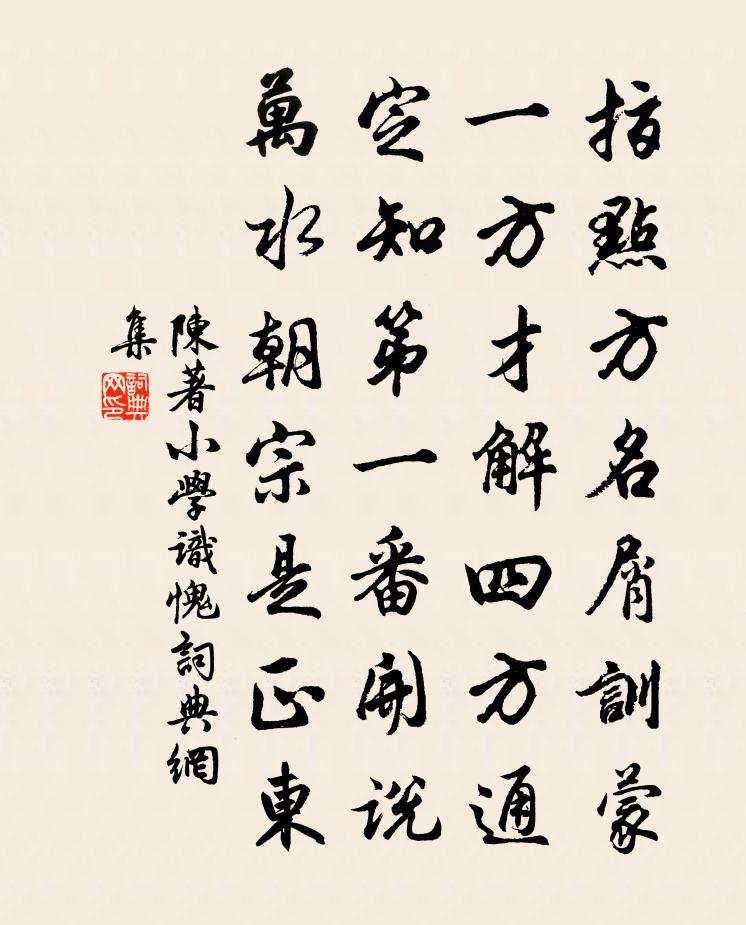 指點方名屑訓蒙
一方才解四方通
定知第一番開説
萬水朝宗是正東
陳著小學識愧詞典網
集
詞典
网印